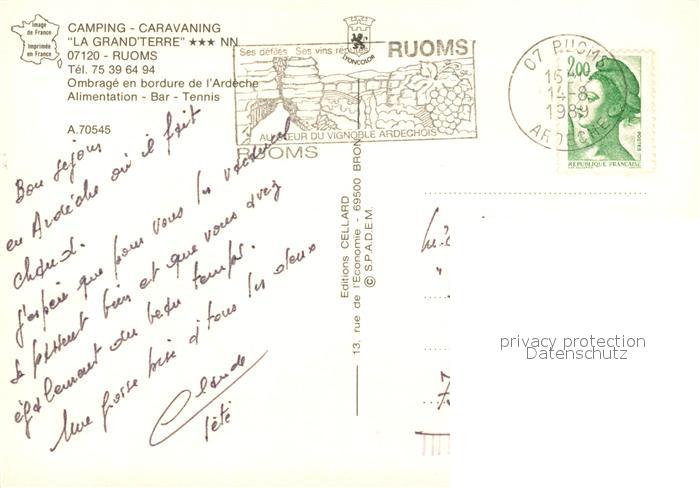 Image
de France
Imprimée
en France
CAMPING - CARAVANING
"LA GRAND'TERRE" ★★★ NN
07120 - RUOMS
Tél. 75 39 64 94
Ombragé en bordure de l'Ardèche
Alimentation - Bar - Tennis
A.70545
LYONCOLOR
Ses défilés Ses vins réputés
RUOMS
AU CŒUR DU VIGNOBLE ARDECHOIS
RUOMS
07 RUOMS
16
14-8
1989
ARDECHE
2,00
POSTES
REPUBLIQUE FRANÇAISE
Bon séjour
en Ardèche où il fait
chaud.
J'espère que pour vous les vacances
se passent bien et que vous avez
également du beau temps.
Une grosse bise à tous les deux
Claude
l'été
Editions CELLARD
13, rue de l'Economie - 69500 BRON
© S.P.A.D.E.M.
privacy protection
Datenschutz